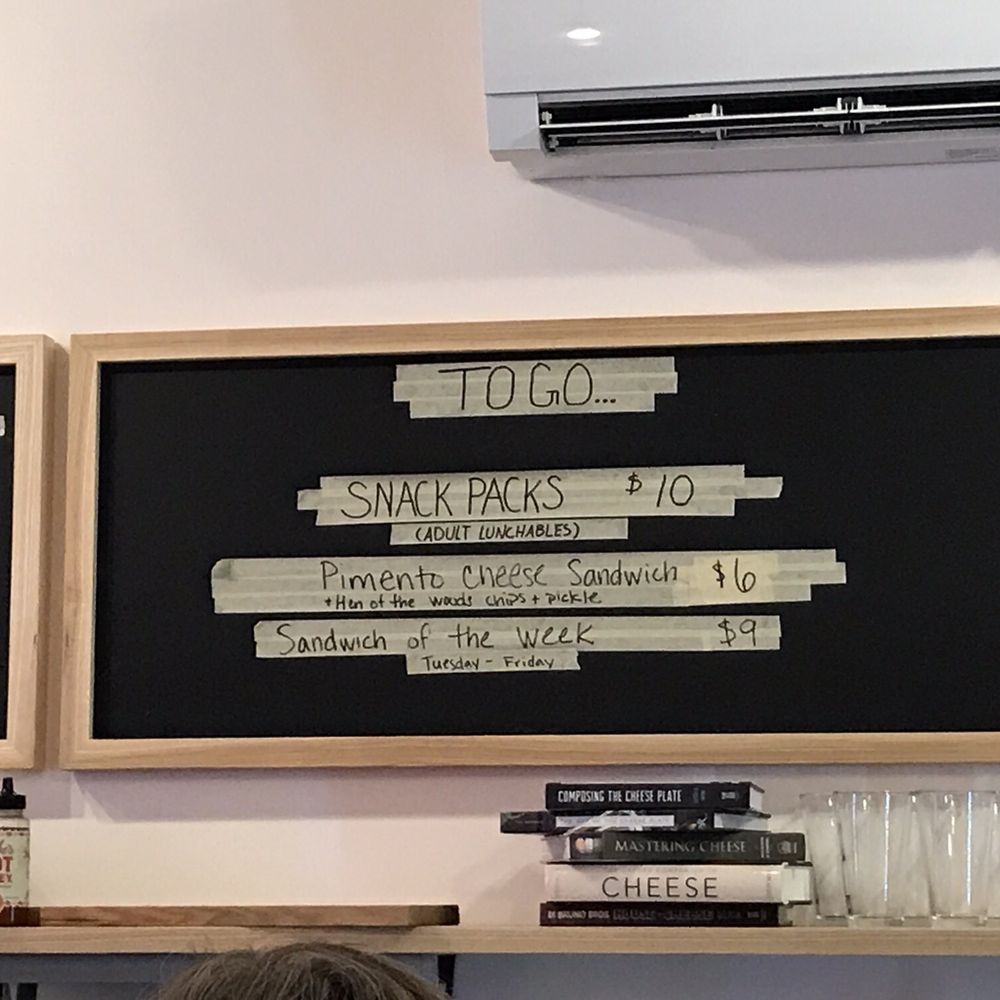 TO GO...
SNACK PACKS $10
(ADULT LUNCHABLES)
Pimento Cheese Sandwich $6
+ Hen of the woods chips + pickle
Sandwich of the week $9
Tuesday - Friday
COMPOSING THE CHEESE PLATE
MASTERING CHEESE
CHEESE
DI BRUNO BROS. HOUSE OF CHEESE